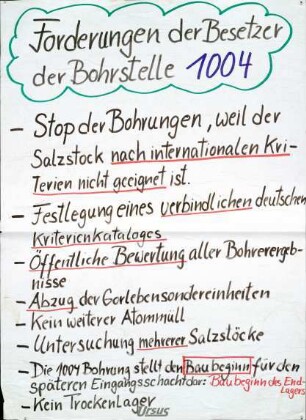 Forderungen der Besetzer
der Bohrstelle 1004
- Stop der Bohrungen, weil der
Salzstock nach internationalen Kri-
terien nicht geeignet ist.
- Festlegung eines verbindlichen deutschen
Kriterienkataloges
- Öffentliche Bewertung aller Bohrergeb-
nisse
- Abzug der Gorlebensondereinheiten
- Kein weiterer Atommüll
- Untersuchung mehrerer Salzstöcke
- Die 1004 Bohrung stellt den Baubeginn für den
späteren Eingangsschacht dar: Baubeginn des End-
lagers
- Kein Trockenlager
Ursus